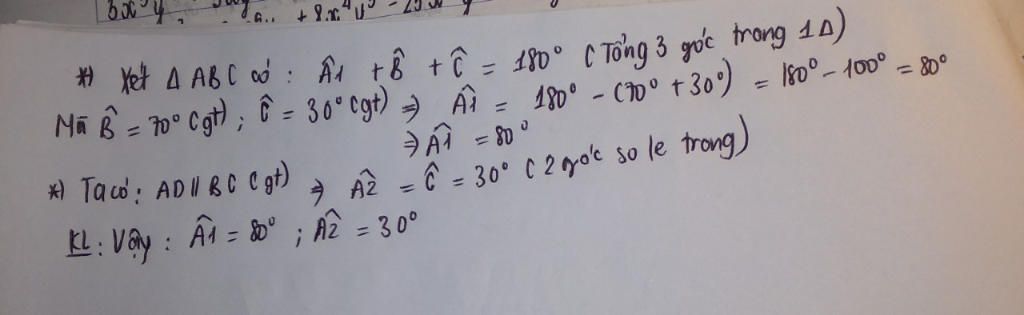 3x³y
+ 8x⁴y³ - 25x
*) Xét Δ ABC có : Â1 + B̂ + Ĉ = 180° ( Tổng 3 góc trong 1 Δ)
Mà B̂ = 70° (gt) ; Ĉ = 30° (gt) ⇒ Â1 = 180° - (70° + 30°) = 180° - 100° = 80°
⇒ Â1 = 80°
*) Ta có : AD // BC (gt) ⇒ Â2 = Ĉ = 30° ( 2 góc so le trong)
KL : Vậy : Â1 = 80° ; Â2 = 30°